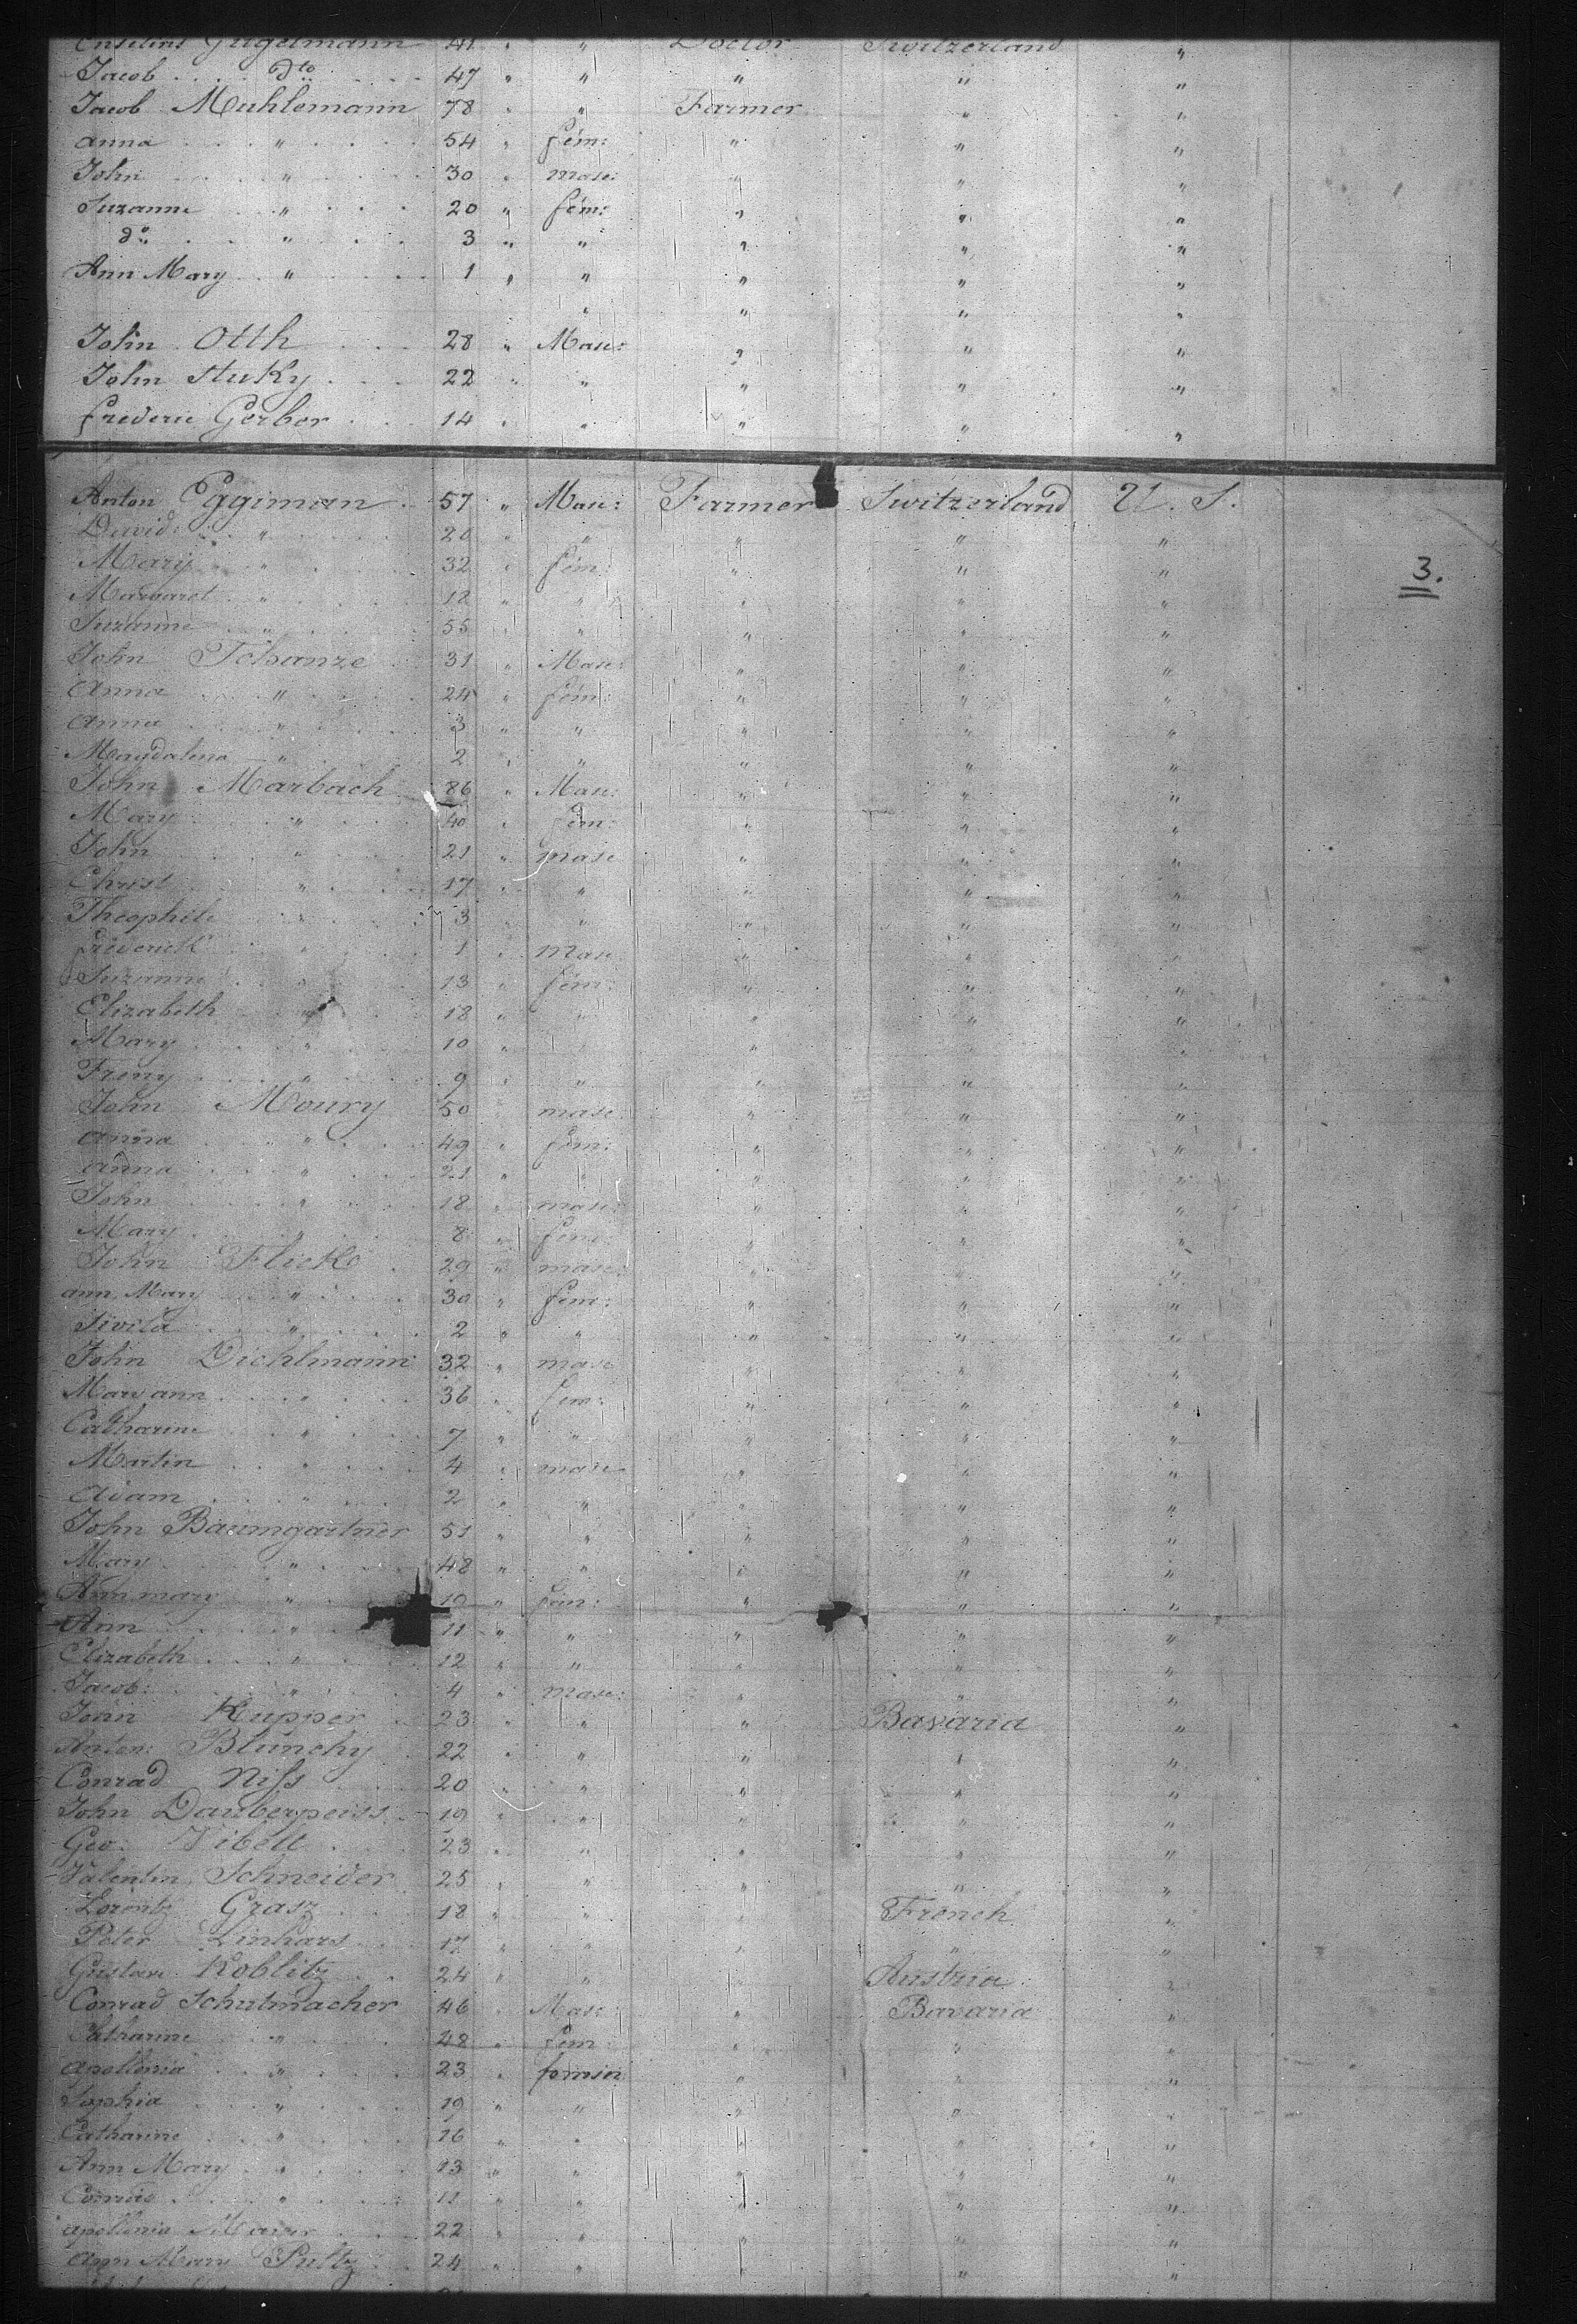 Gugelmann 41 " " Doctor Switzerland "
Jacob . . . dto . . . 47 " " " " "
Jacob Muhlemann 78 " " Farmer " "
Anna . . . " . . . 54 " fem: " " "
John . . . " . . . 30 " masc: " " "
Suzanne . . " . . . 20 " fem: " " "
do . . . " . . . 3 " " " " "
Ann Mary . . " . . . 1 " " " " "
" " " "
John Otth . . . 28 " Masc: " " "
John Stuky . . . 22 " " " " "
frederic Gerber . . . 14 " " " " "
Anton Eggiman . . 57 " Masc: Farmer Switzerland U. S.
David: . . " . . . 20 " " " " "
Mary . . " . . . 32 " fem: " " "
3.
Margaret . " . . . 12 " " " " "
Suzanne . . " . . . 55 " " " " "
John Tchanze . . 31 " Masc: " " "
Anna . . . " . . . 24 " fem: " " "
Anna . . . " . . . 3 " " " " "
Magdalena . . " . . . 2 " " " " "
John Marbach 86 " Masc: " " "
Mary . . . " . . . 40 " fem: " " "
John . . . " . . . 21 " masc " " "
Christ . . . " . . . 17 " " " " "
Theophile . . " . . . 3 " " " " "
frederick . . " . . . 1 " masc " " "
Suzanne . . " . . . 13 " fem: " " "
Elizabeth . . " . . . 18 " " " " "
Mary . . . " . . . 10 " " " " "
Freny . . . " . . . 9 " " " " "
John Moury 50 " masc: " " "
Anna . . . " . . . 49 " fem: " " "
Anna . . . " . . . 21 " " " " "
John . . . " . . . 18 " masc: " " "
Mary . . . " . . . 8 " fem: " " "
John Flick . 29 " masc: " " "
Ann Mary . . " . . . 30 " fem: " " "
Sivila . . . " . . . 2 " " " " "
John Dichlmann 32 " masc " " "
Mary ann . . " . . . 36 " fem: " " "
Catharine . . " . . . 7 " " " " "
Martin . . . " . . . 4 " masc " " "
Adam . . . " . . . 2 " " " " "
John Baumgartner 51 " " " " "
Mary . . . " . . . 48 " " " " "
Ann mary . . " . . . 10 " fem: " " "
Ann . . . " . . . 11 " " " " "
Elizabeth . . . " . . . 12 " " " " "
Jacob: . . . " . . . 4 " masc: " " "
John Kupper . 23 " " " Bavaria "
Anton: Blunchy . 22 " " " " "
Conrad Niss . . . 20 " " " " "
John Dauberpeiss . 19 " " " " "
Geo: Vibelt . . . 23 " " " " "
Valentin Schneider 25 " " " " "
Lorentz Grasz . . . 18 " " " French "
Peter Linhars . . . 17 " " " " "
Gustave Koblitz . . 24 " " " Austria "
Conrad Schutmacher 46 " Masc: " Bavaria "
Catharine . . " . . . 48 " fem: " " "
Apollonia . . " . . . 23 " femin " " "
Sophia . . . " . . . 19 " " " " "
Catharine . . " . . . 16 " " " " "
Ann Mary . . " . . . 13 " " " " "
Conrad . . . " . . . 11 " " " " "
Apollonia . . . 22 " " " " "
Ann Mary Pultz . . 24 " " " " "